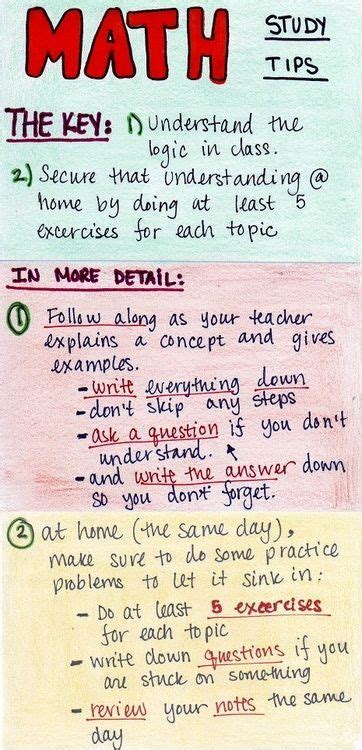 MATH STUDY TIPS
THE KEY: 1) Understand the
logic in class.
2) Secure that understanding @
home by doing at least 5
excercises for each topic
IN MORE DETAIL:
1 Follow along as your teacher
explains a concept and gives
examples.
- write everything down
- don't skip any steps
- ask a question if you don't
understand.
- and write the answer down
so you don't forget.
2 at home (the same day),
make sure to do some practice
problems to let it sink in:
- Do at least 5 excercises
for each topic
- write down questions if you
are stuck on something
- review your notes the same
day